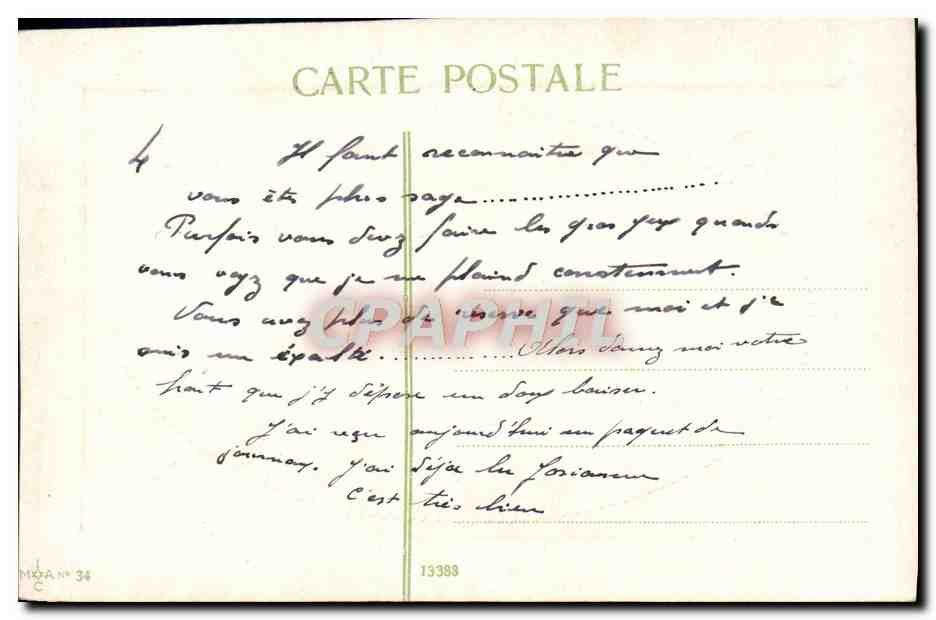 CARTE POSTALE
4 Il faut reconnaitre que
vous êtes plus sage...........................
Parfois vous devez faire les gros yeux quands
vous voyez que je me plaind constenment.
Vous avez plus de reserve que moi et j'e
suis un épalté ................ Alors donnez moi votre
front que j'y dépose un doux baiser.
J'ai reçu aujourd'hui un paquet de
journax. J'ai déja lu
c'est très bien
CPAPHIL
13388
Nº 34